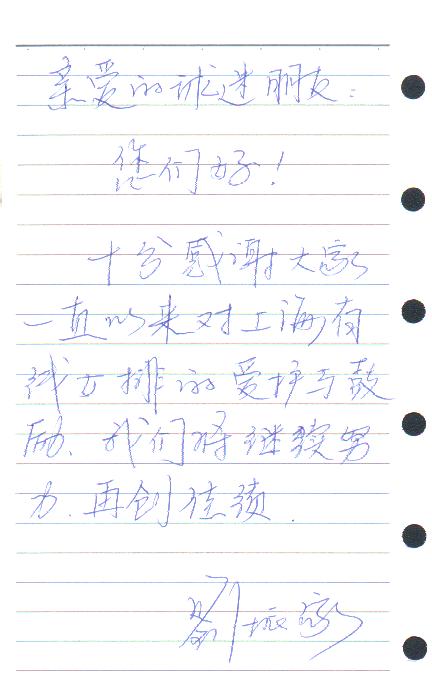 亲爱的球迷朋友：
您们好！
十分感谢大家
一直以来对上海有
线女排的爱护与鼓
励、我们将继续努
力、再创佳绩.